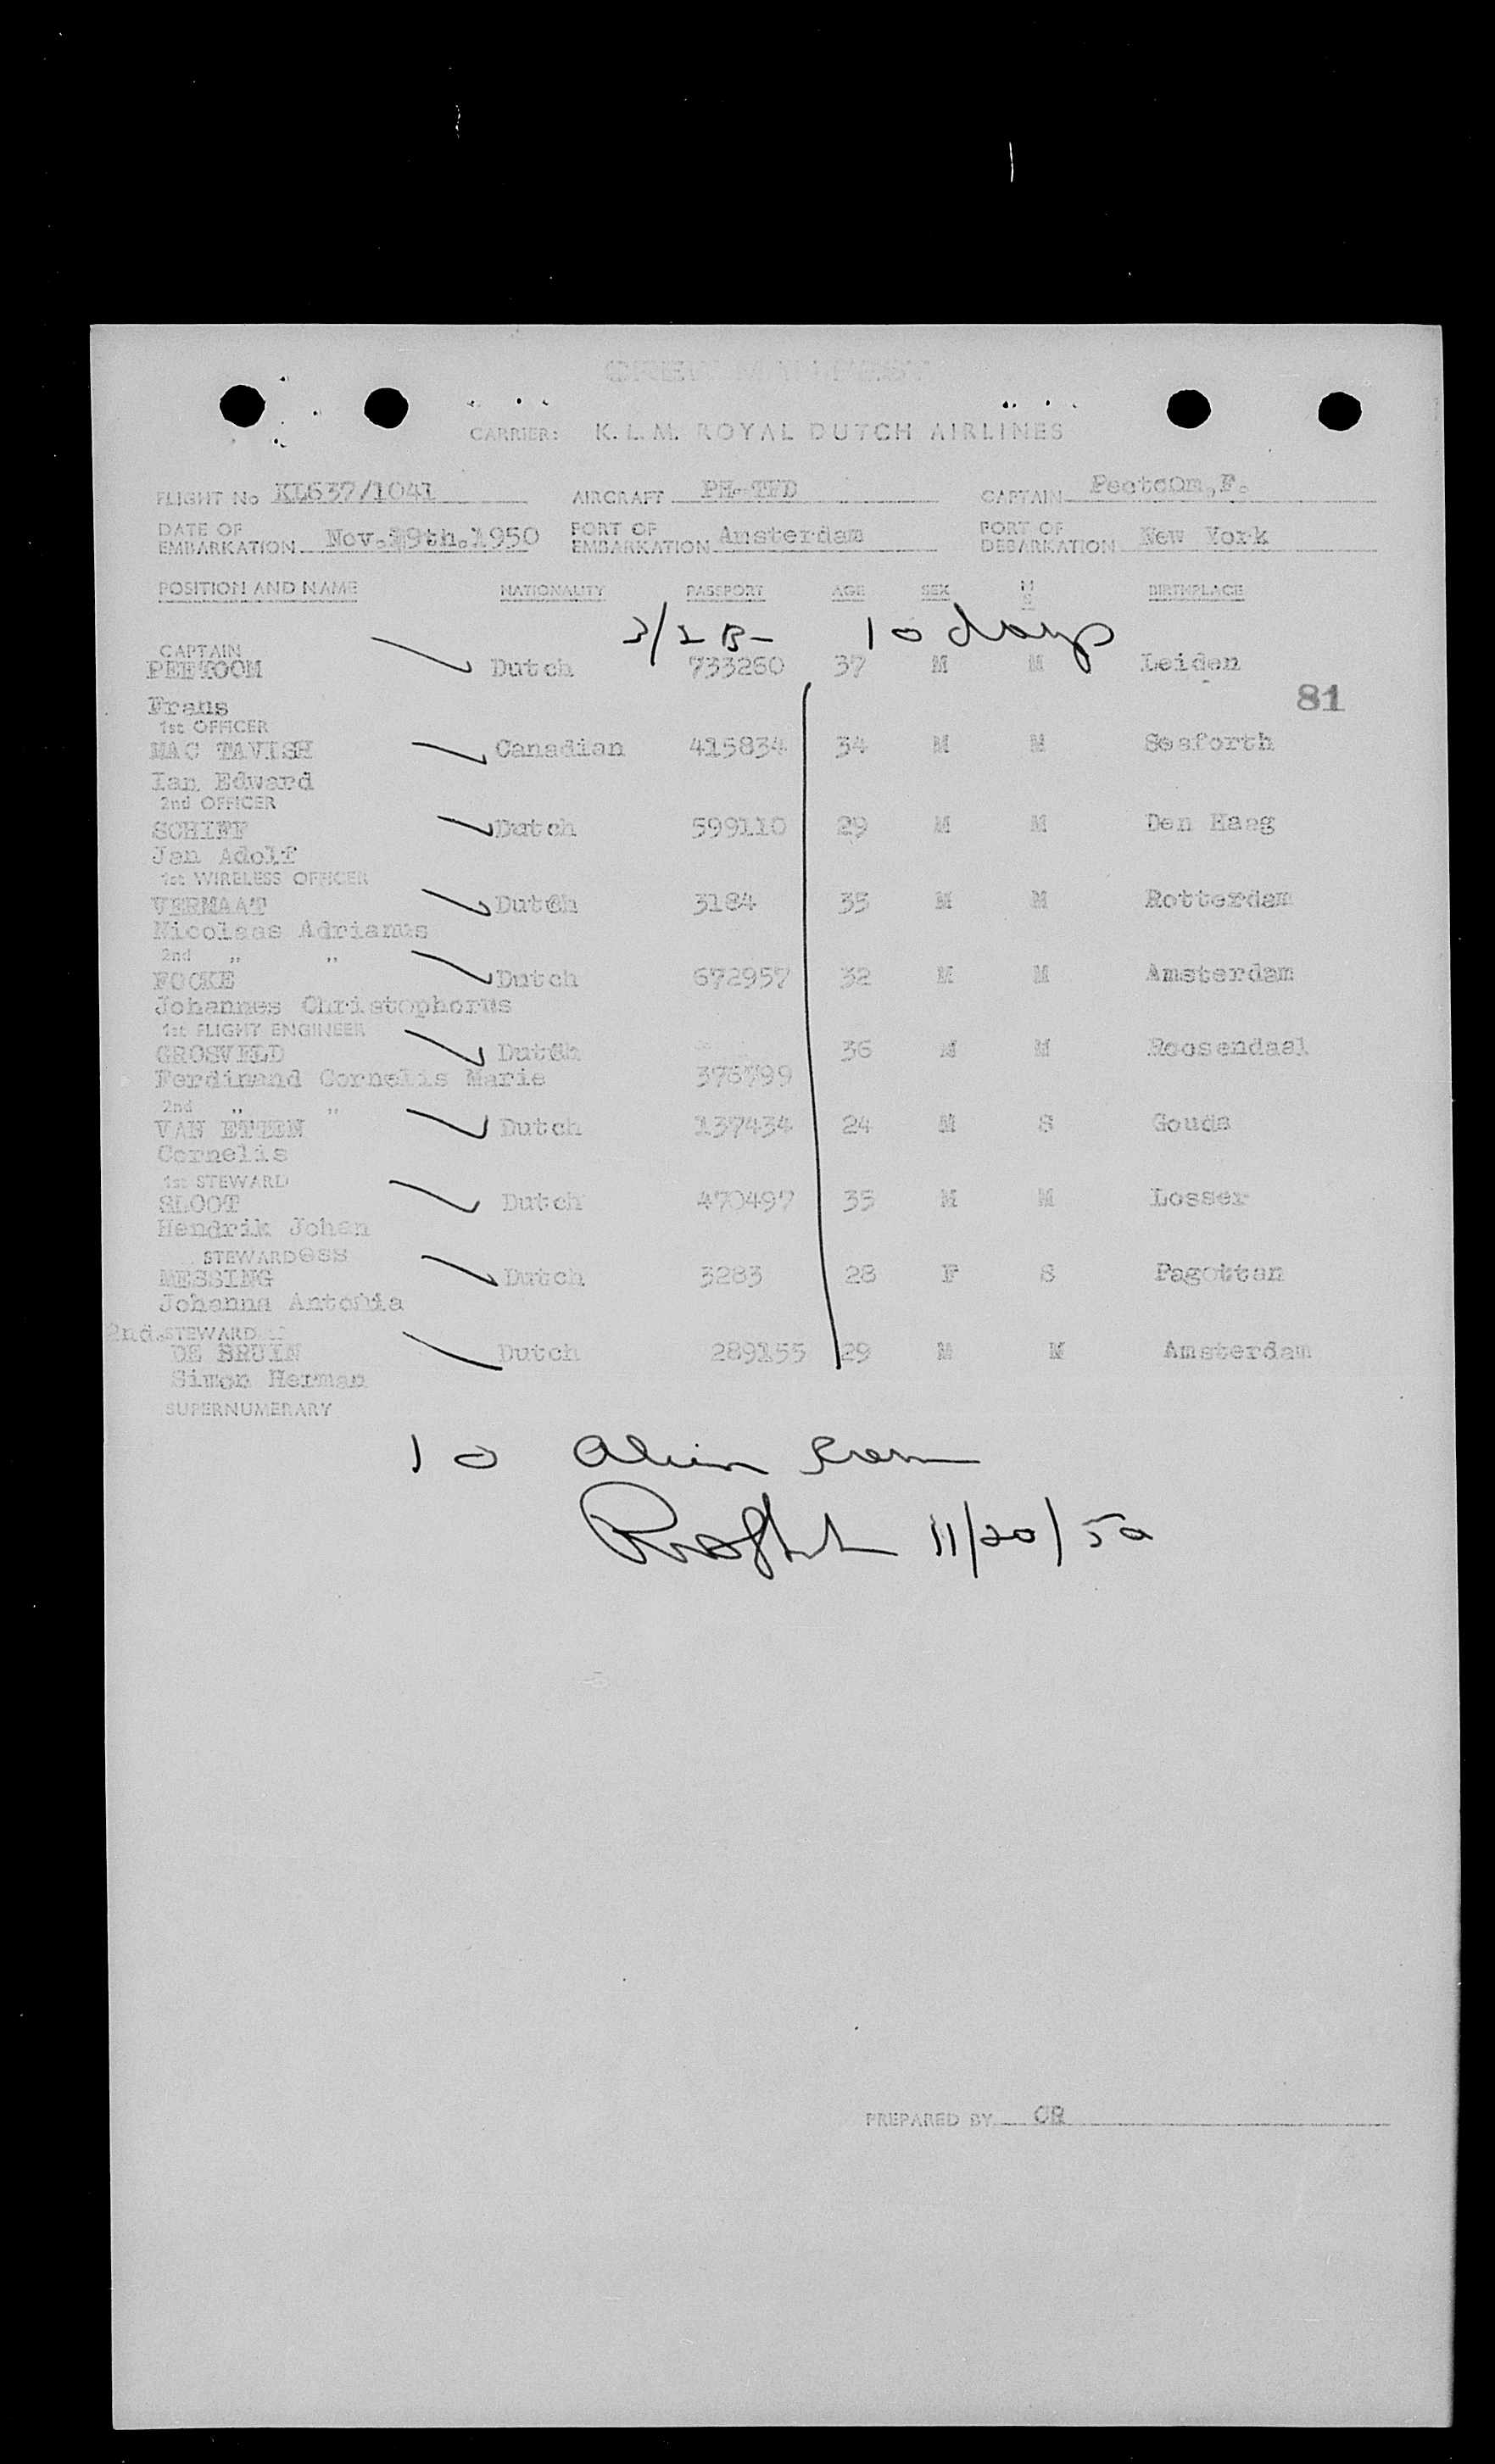 CREW MANIFEST
CARRIER: K. L. M. ROYAL DUTCH AIRLINES
FLIGHT No KL637/1041 AIRCRAFT PH-TFD CAPTAIN Peetoom,F.
DATE OF EMBARKATION Nov.19th.1950 PORT OF EMBARKATION Amsterdam PORT OF DEBARKATION New York
POSITION AND NAME NATIONALITY PASSPORT AGE SEX M S BIRTHPLACE
10 days
CAPTAIN
PEETOOM Dutch 733260 37 M M Leiden
81
Frans
1st OFFICER
MAC TAVISH Canadian 415834 34 M M Seaforth
Ian Edward
2nd OFFICER
SCHIFF Dutch 599110 29 M M Den Haag
Jan Adolf
1st WIRELESS OFFICER
VERMAAT Dutch 3184 35 M M Rotterdam
Nicolaas Adrianus
2nd " "
FOCKE Dutch 672957 32 M M Amsterdam
Johannes Christophorus
1st FLIGHT ENGINEER
GROSVELD Dutch 36 M M Roosendaal
Ferdinand Cornelis Marie 376799
2nd " "
VAN ETTEN Dutch 137434 24 M S Gouda
Cornelis
1st STEWARD
SLOOT Dutch 470497 35 M M Losser
Hendrik Johan
STEWARDESS
MESSING Dutch 3283 28 F S Pagottan
Johanna Antonia
2nd.STEWARD
DE BRUIN Dutch 289155 29 M M Amsterdam
Simon Herman
SUPERNUMERARY
10 Alien Crew
11/20/50
PREPARED BY CR